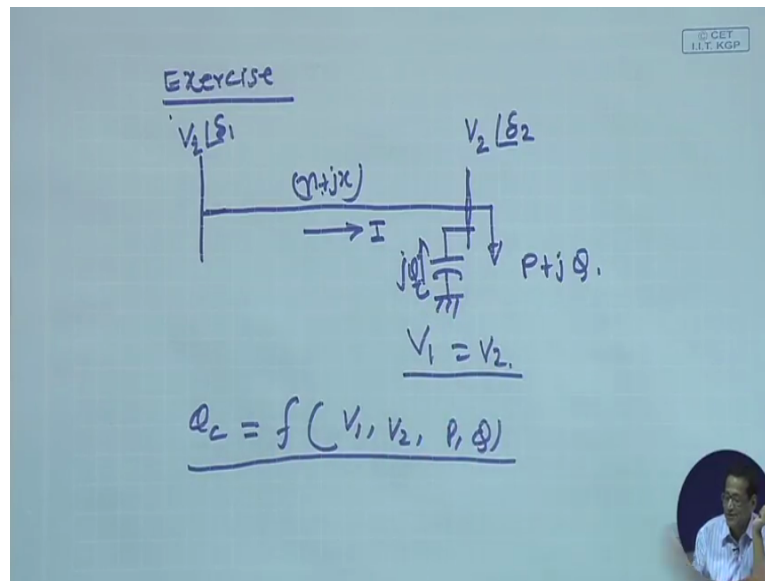 © CET
I.I.T. KGP
Exercise
V₂∠δ₁
V₂∠δ₂
(r+jx)
→ I
jQc
P+jQ.
V₁ = V₂.
Qc = f(V₁, V₂, P, Q)